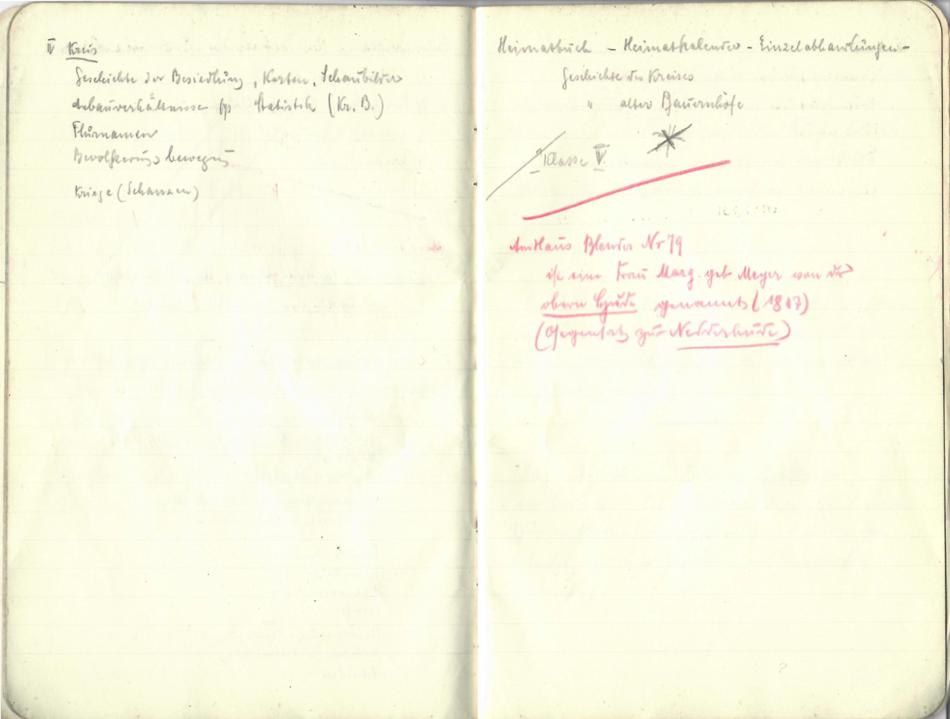 IV Kreis
Geschichte der Besiedlung, Karten, Schaubilder
Anbauverhältnisse pp Statistik (Kr. B.)
Flurnamen
Bevölkerungsbewegung
Kriege (Schanzen)
Heimatbuch – Heimatkalender – Einzelabhandlungen –
Geschichte des Kreises
" alter Bauernhöfe
Klasse V.
Haus Blender Nr 79
ist eine Frau Marg. geb Meyer von der
obern Hude genannt (1817)
(Gegensatz zur Nedderhude)